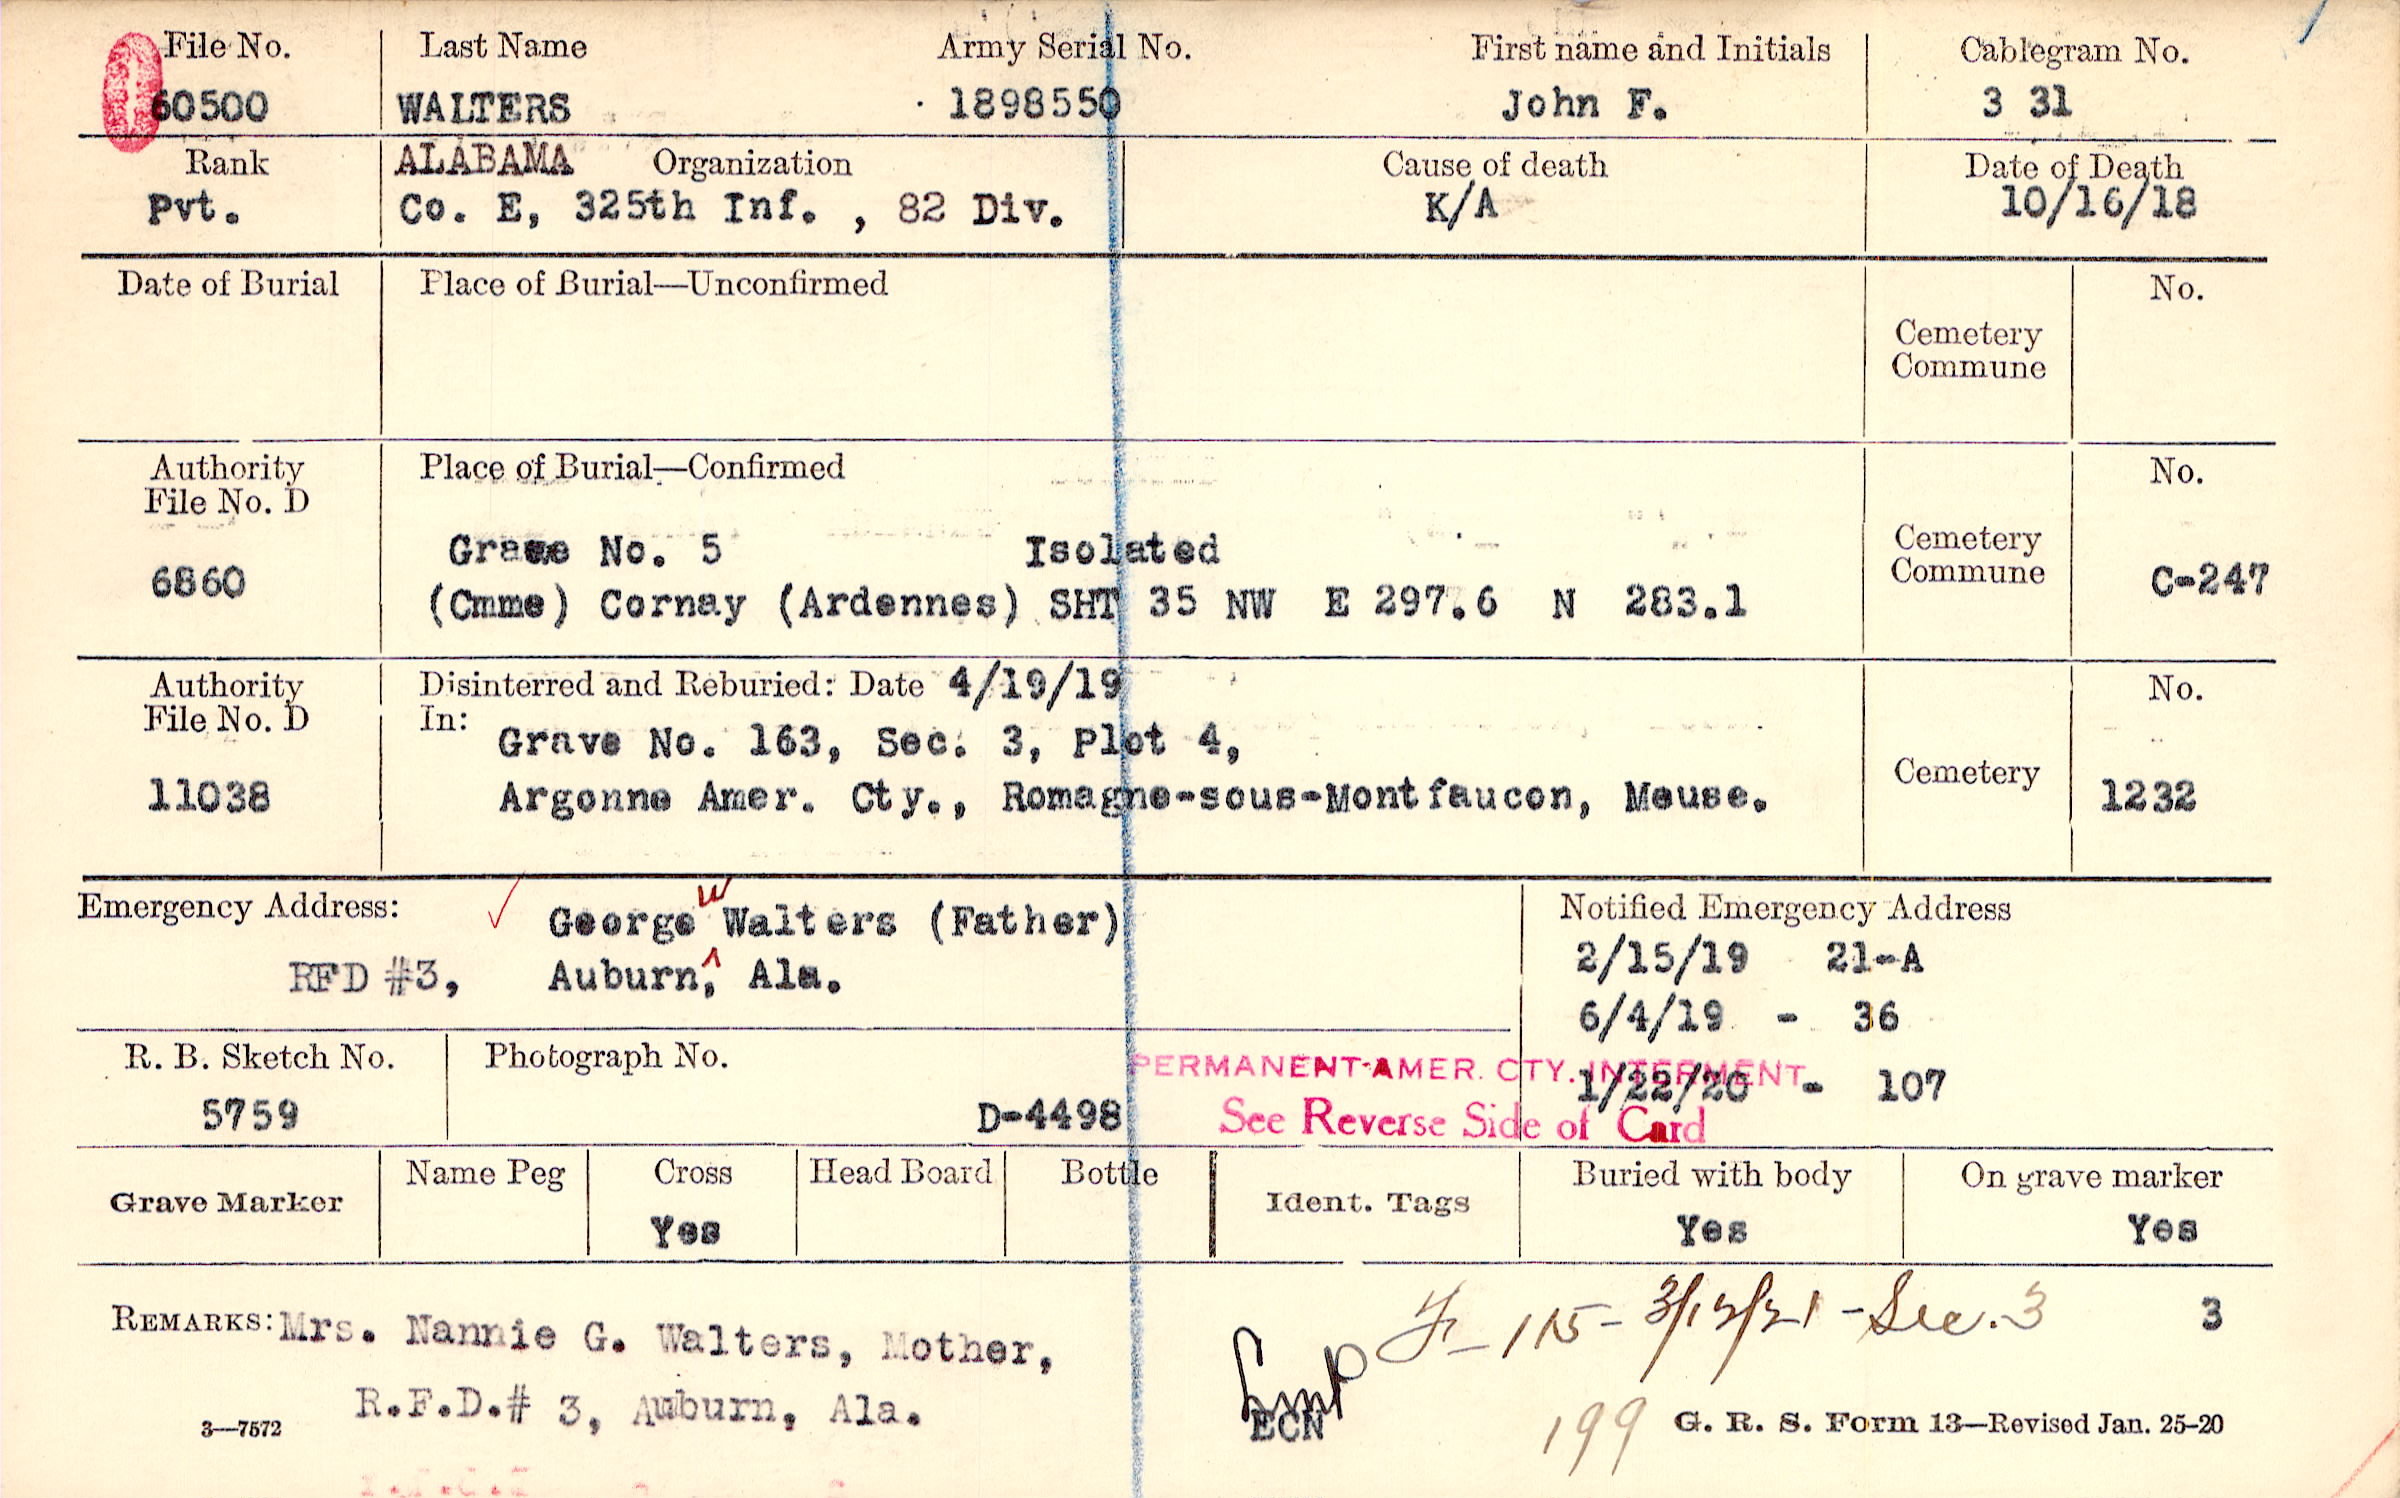 File No. Last Name Army Serial No. First name and Initials Cablegram No.
60500 WALTERS 1898550 John F. 3 31
Rank ALABAMA Organization Cause of death Date of Death
Pvt. Co. E, 325th Inf. , 82 Div. K/A 10/16/18
Date of Burial Place of Burial—Unconfirmed No.
Cemetery
Commune
Authority Place of Burial—Confirmed No.
File No. D
Grave No. 5 Isolated Cemetery
6860 Commune C-247
(Cmme) Cornay (Ardennes) SHT 35 NW E 297.6 N 283.1
Authority Disinterred and Reburied: Date 4/19/19 No.
File No. D In:
Grave No. 163, Sec. 3, Plot 4,
Cemetery
11038 Argonne Amer. Cty., Romagne-sous-Montfaucon, Meuse. 1232
Emergency Address: George W Walters (Father) Notified Emergency Address
RFD #3, Auburn, Ala. 2/15/19 21-A
6/4/19 - 36
R. B. Sketch No. Photograph No. PERMANENT-AMER. CTY. INTERMENT
1/22/20 - 107
5759 D-4498 See Reverse Side of Card
Grave Marker Name Peg Cross Head Board Bottle Ident. Tags Buried with body On grave marker
Yes Yes Yes
REMARKS: Mrs. Nannie G. Walters, Mother, 115- 3/12/21 - Sec. 3 3
R.F.D.# 3, Auburn, Ala.
3—7572 ECN 199 G. R. S. Form 13—Revised Jan. 25-20